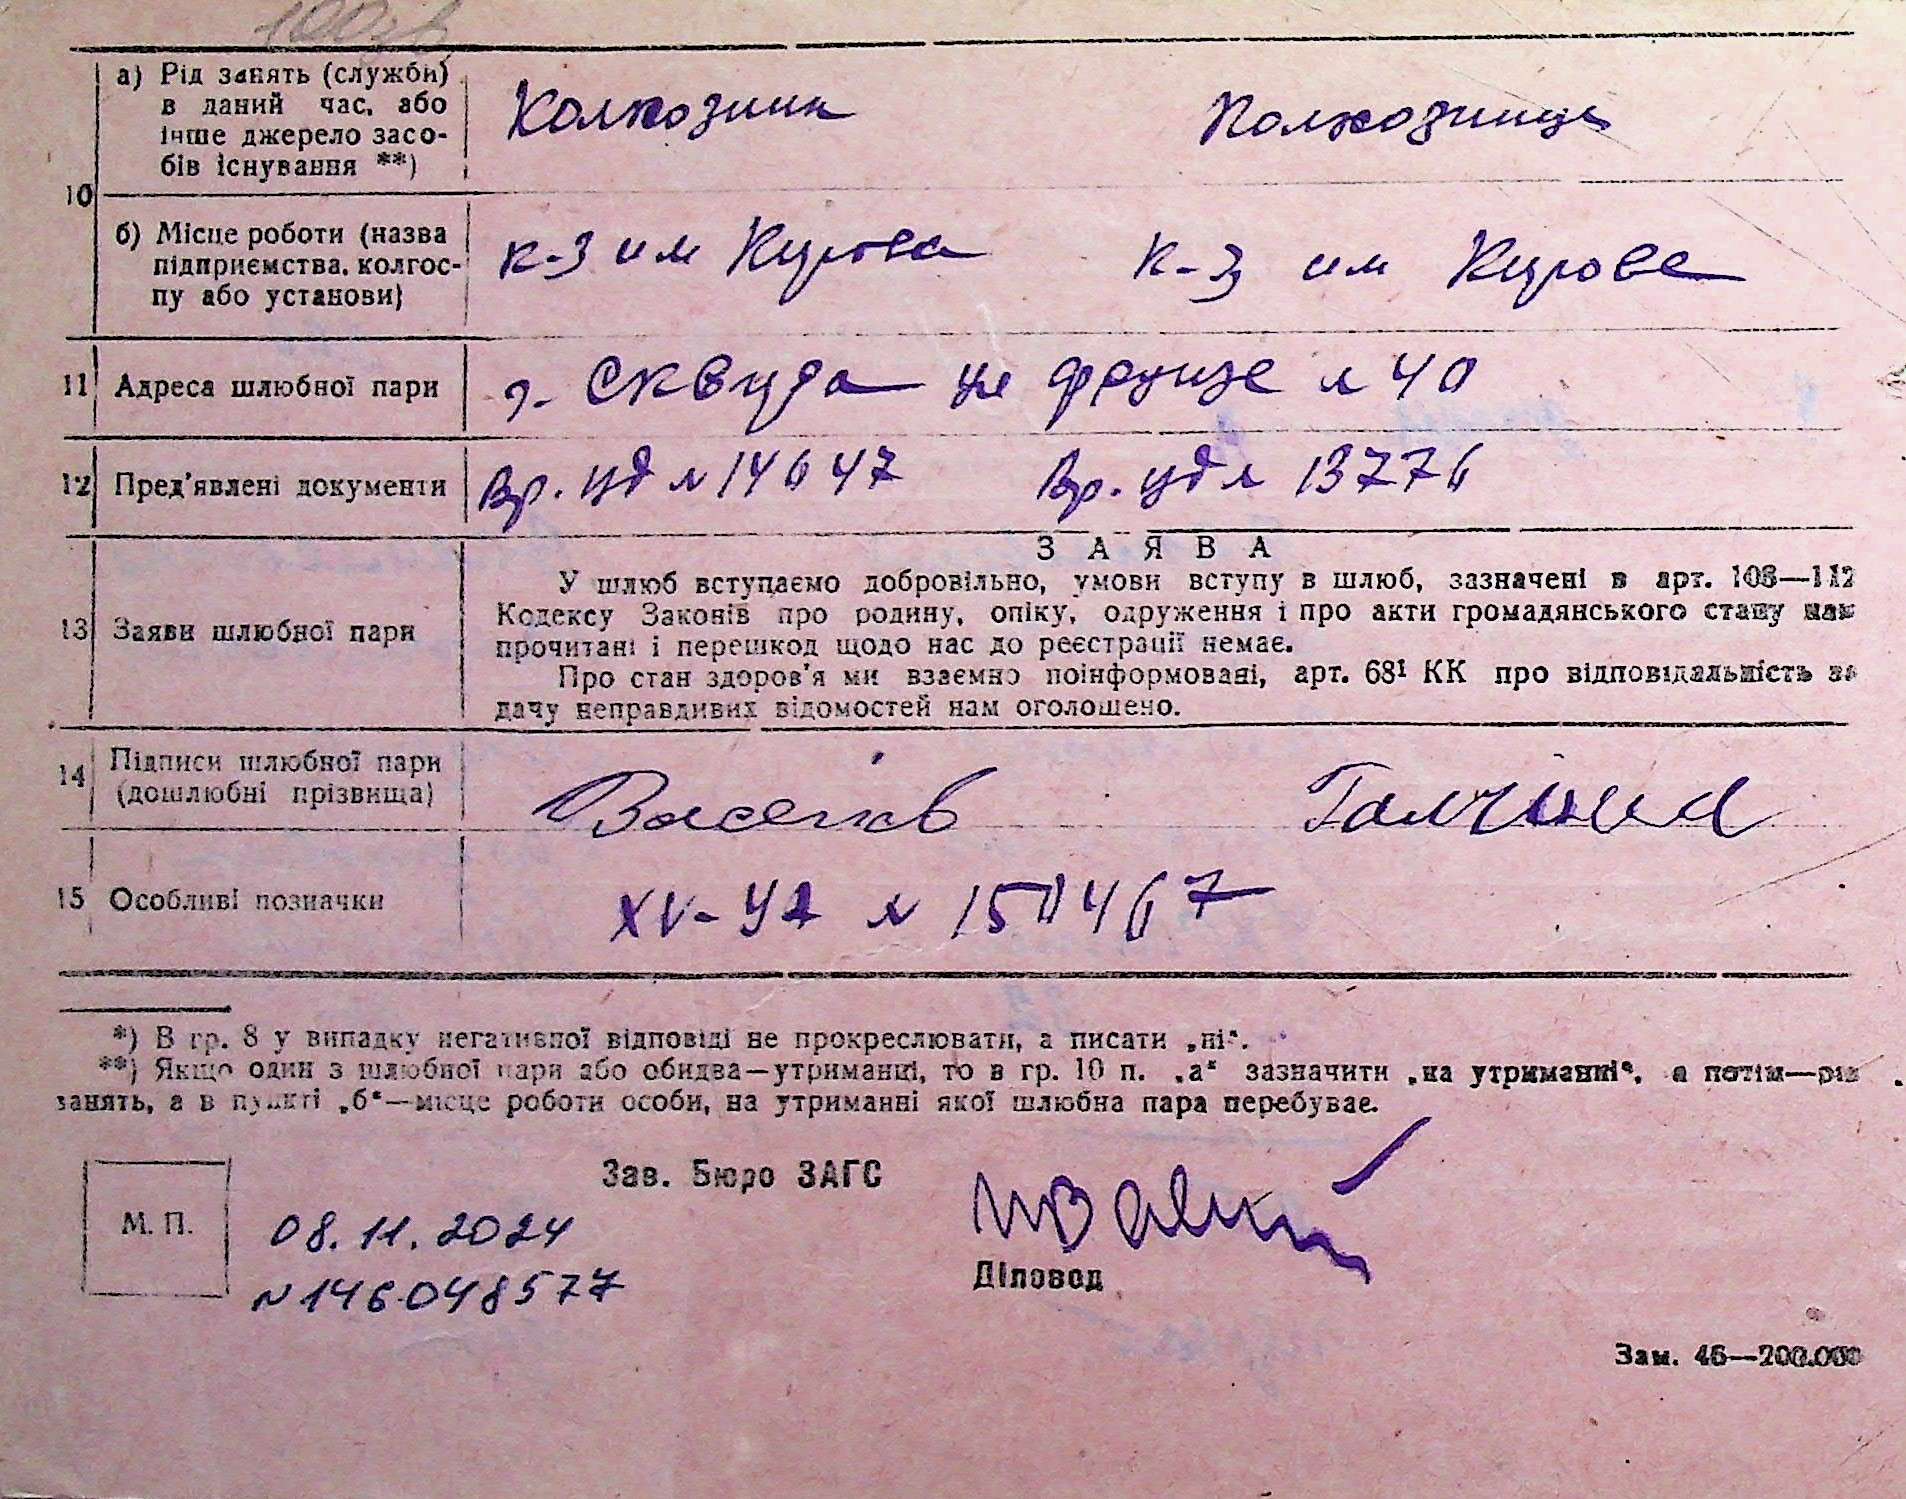 10
а) Рід занять (служби)
в даний час, або
інше джерело засо-
бів існування **)
Колхозник Колхозница
б) Місце роботи (назва
підприємства, колгос-
пу або установи)
к-з им Кирова к-з им Кирова
11 Адреса шлюбної пари
г. Сквира ул Фрунзе № 40
12 Пред'явлені документи
Вр. уд № 14647 Вр. уд № 13776
13 Заяви шлюбної пари
ЗАЯВА
У шлюб вступаємо добровільно, умови вступу в шлюб, зазначені в арт. 108—112
Кодексу Законів про родину, опіку, одруження і про акти громадянського стану нам
прочитані і перешкод щодо нас до реєстрації немає.
Про стан здоров'я ми взаємно поінформовані, арт. 68¹ КК про відповідальність за
дачу неправдивих відомостей нам оголошено.
14 Підписи шлюбної пари
(дошлюбні прізвища)
15 Особливі позначки
№ 150467
*) В гр. 8 у випадку негативної відповіді не прокреслювати, а писати „ні“.
**) Якщо один з шлюбної пари або обидва—утриманці, то в гр. 10 п. „а“ зазначити „на утриманні“, а потім—рід
занять, а в пункті „б“—місце роботи особи, на утриманні якої шлюбна пара перебуває.
Зав. Бюро ЗАГС
М. П.
08.11.2024
Діловод
N146048577
Зам. 46—200.000